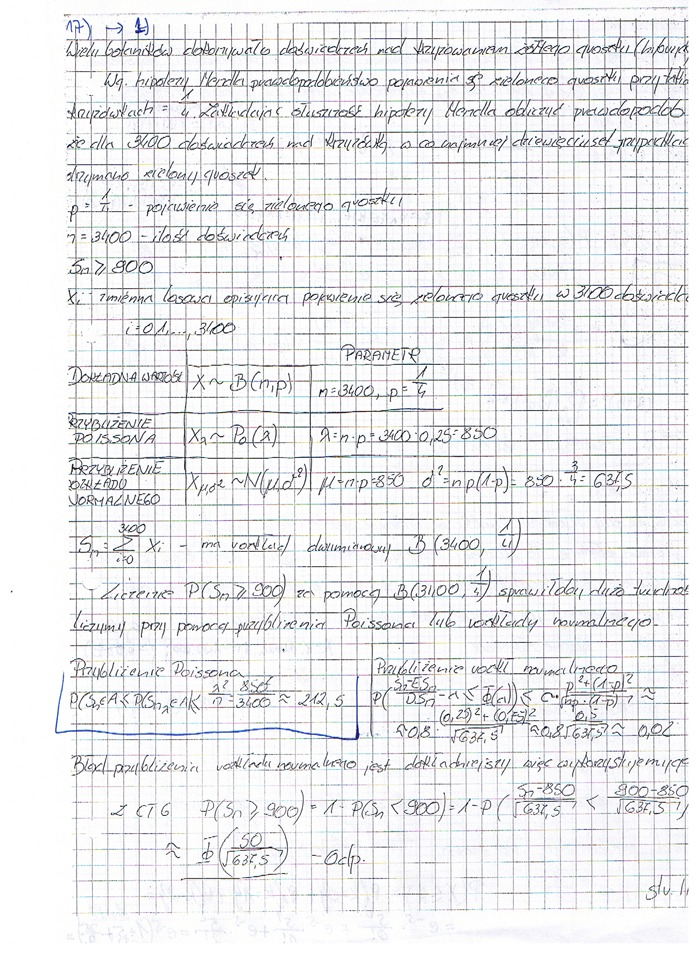 17) → 1)
Wielu botaników dokonywało doświadczeń nad krzyżowaniem żółtego groszku (hybryd
Wg. hipotezy Mendla prawdopodobieństwo pojawienia się zielonego groszku przy takic
krzyżówkach = 1/4. Zakładając słuszność hipotezy Mendla obliczyć prawdopodob
że dla 3400 doświadczeń nad krzyżówką w co najmniej dziewięciuset przypadkac
otrzymano zielony groszek.
p = 1/4 - pojawienie się zielonego groszku
n = 3400 - ilość doświadczeń
Sn ≥ 900
Xi - zmienna losowa opisująca pojawienie się zielonego groszku w 3400 doświadcz
i = 0,1,...,3400
PARAMETR
DOKŁADNA WARTOŚĆ X ~ B(n,p) n = 3400, p = 1/4
PRZYBLIŻENIE POISSONA Xλ ~ Po(λ) λ = n·p = 3400·0,25 = 850
PRZYBLIŻENIE ROZKŁADU NORMALNEGO Xμ,σ² ~ N(μ,σ²) μ = n·p = 850 σ² = np(1-p) = 850·3/4 = 637,5
Sn = Σ_{i=0}^{3400} Xi - ma rozkład dwumianowy B(3400, 1/4)
Liczenie P(Sn ≥ 900) za pomocą B(3400, 1/4) sprawiłoby dużo trudnoś
liczymy przy pomocy przybliżenia Poissona lub rozkłady normalnego.
Przybliżenie Poissona
P(Sn∈A < P(Snλ∈A) < λ²/n = 850²/3400 ≈ 212,5
Przybliżenie rozkł normalnego
P((Sn-ESn)/DSn - a ≤ Φ(a)) < C·(p²+(1-p)²)/√(np·(1-p)) ≈
≈ 0,8·((0,25)²+(0,75)²)/√637,5 ≈ 0,8 0,5/√637,5 ≈ 0,02
Błąd przybliżenia rozkładu normalnego jest dokładniejszy więc wykorzystujemy je
z CTG P(Sn ≥ 900) = 1 - P(Sn < 900) = 1 - P((Sn-850)/√637,5 < (900-850)/√637,5)
≈ Φ(50/√637,5) - Odp.
str. 1